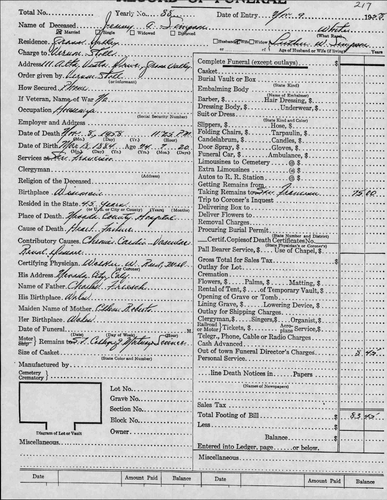 RECORD OF FUNERAL
217
Total No. Yearly No. 58 Date of Entry Nov. 9 1958
Name of Deceased Simpson White
Married Single Widowed Divorced Husband Wife Widow of W. Simpson (What Race)
Age of Husband or Wife (if living)
Residence Grass Valley
Charge to Vernon Stoll
Address Alta Vista Drive, Grass Valley
Order given by Vernon Stoll
(or Informant)
How Secured Phone
If Veteran, Name of War No
Occupation Housewife
(Social Security Number)
Employer and Address
Date of Death Nov. 8, 1958 11:05 P.M.
Date of Birth Mar 18, 1884 Age 74 7 20
(Mo.) (Day) (Yr.) (Yrs.) (Mos.) (Days)
Services at San Francisco
Clergyman
(Address)
Religion of the Deceased
Birthplace Wisconsin
Resided in the State 45 years
(or U.S., City or County)
Place of Death Nevada County Hospital
Cause of Death Heart Failure
Contributory Causes Chronic Cardio-Vascular
Renal Disease
Certifying Physician Walter W. Reed, M.D.
His Address Nevada City, City
Name of Father Charles
His Birthplace Wales
Maiden Name of Mother Ellen Roberts
Her Birthplace Wales
Date of Funeral
(Date) (Day of Week) (Hour)
Motor Ship Remains to
Size of Casket
(State Color and Number)
Manufactured by
Cemetery
Crematory
Lot No.
Grave No.
Section No.
Block No.
Owner
Diagram of Lot or Vault
Miscellaneous
Complete Funeral (except outlays) $
Casket
Burial Vault or Box
(State Kind)
Embalming Body
(State Kind)
Barber, $ Hair Dressing, $
Dressing Body, $ Underwear, $
Suit or Dress
(State Kind and Color)
Slippers, $ Hose, $
Folding Chairs, $ Tarpaulin, $
Candelabrum, $ Candles, $
Door Spray, $ Gloves, $
Funeral Car, $ Ambulance, $
Limousines to Cemetery @ $
Extra Limousines @ $
Autos to R. R. Station @ $
Getting Remains from
Taking Remains to San Francisco 75 00
Trip to Coroner's Inquest
Delivering Box to
Deliver Flowers to
Removal Charges
Procuring Burial Permit
Certif. Copies of Death Certificates No.
Pall Bearer Service, $ Use of Chapel, $
Gross Total for Sales Tax $
Outlay for Lot
Cremation
Flowers, $ Palms, $ Matting, $
Rental of Tent, $ of Temporary Vault, $
Opening of Grave or Tomb
Lining Grave, $ Lowering Device, $
Outlay for Shipping Charges
Clergyman, $ Singers, $ Organist, $
Railroad or Motor Tickets, $ Aeroplane Service, $
Telegr., Phone, Cable or Radio Charges
Cash Advanced
Out of town Funeral Director's Charges
Personal Service
line Death Notices in Papers
(Names of Newspapers)
Sales Tax
Total Footing of Bill $
Less
Balance $
Entered into Ledger, page or below.
Miscellaneous
Date Amount Paid Balance Date Amount Paid Balance